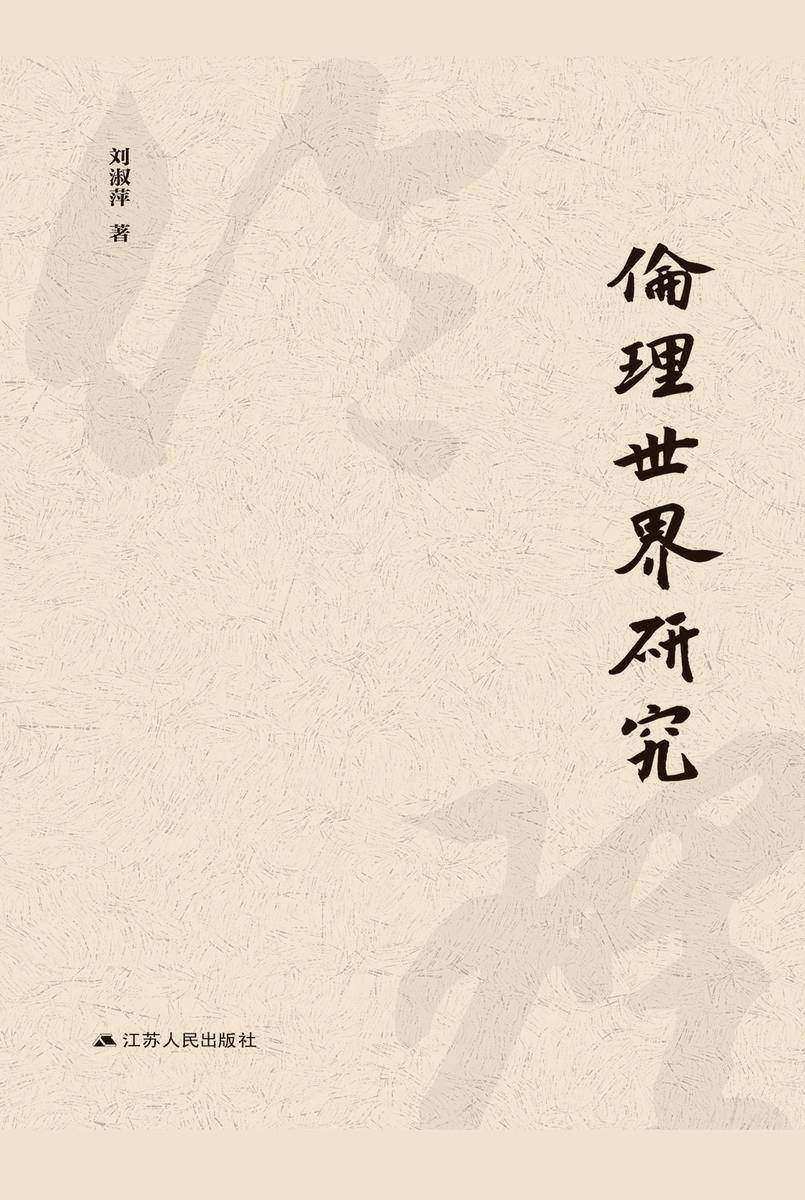 倫理世界研究
刘淑萍 著
江苏人民出版社